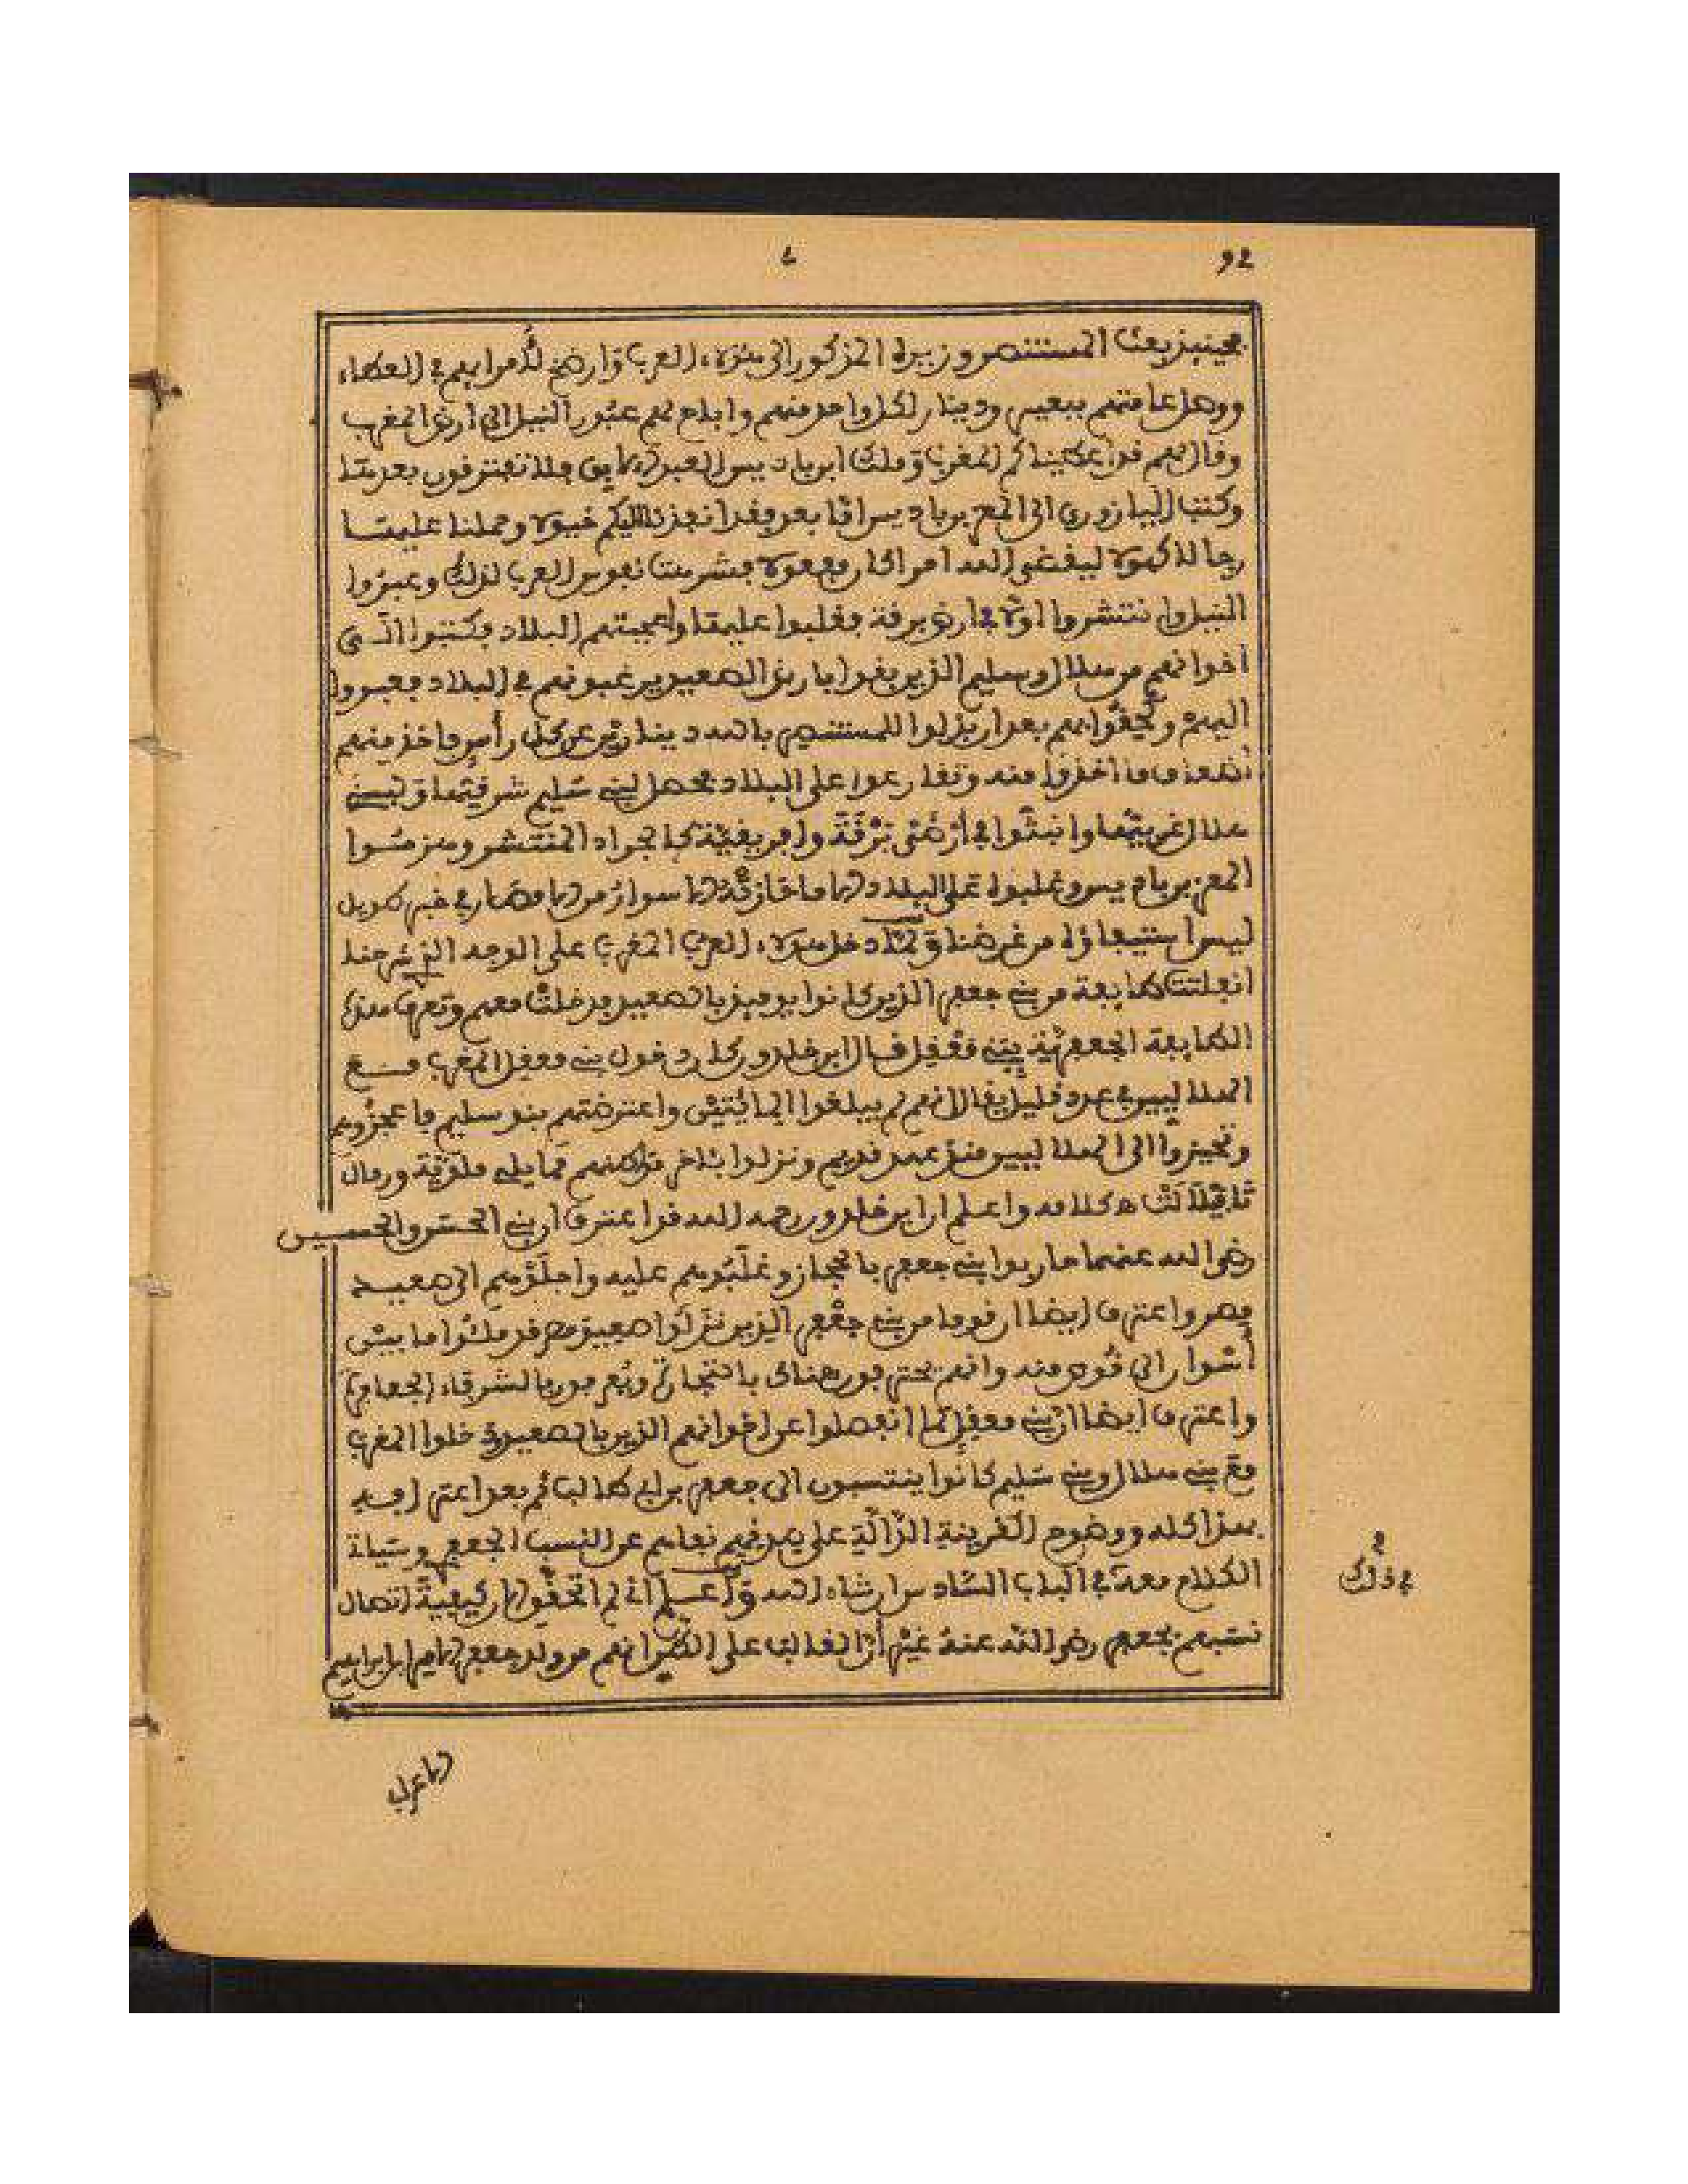 92
فحينئذ بعث المستنصر وزيره المذكور الى هؤلاء العرب وأرضخ لأمرائهم في العطاء
ووصل عامتهم ببعير ودينار لكل واحد منهم وأباح لهم عبور النيل الى ارض المغرب
وقال لهم قد اعطيناكم المغرب وملك ابن باديس العبد الآبق فلا تفتقرون بعدها
وكتب اليازوري الى المعز بن باديس اما بعد فقد انفذنا اليكم خيولا وحملنا عليها
رجالا كهولا ليقضي الله امرا كان مفعولا فشرهت نفوس العرب لذلك وعبروا
النيل وانتشروا اولا في ارض برقة فغلبوا عليها واعجبتهم البلاد فكتبوا الى
اخوانهم من هلال وسليم الذين بقوا بارض الصعيد يرغبونهم في البلاد فعبروا
اليهم ولحقوا بهم بعد ان بذلوا للمستنصر بالله دينارين عن كل رأس فاخذ منهم
اضعاف ما اخذوا منه وتقارعوا على البلاد فحصل لبني سليم شرقيها ولبني
هلال غربيها وانبثوا في أرضي برقة وافريقية كالجراد المنتشر وهزموا
المعز بن باديس وغلبوا على البلاد الا ما حازته الاسوار من الامصار في خبر طويل
ليس استيعابه من غرضنا ولما دخل هؤلاء العرب المغرب على الوجه الذي شرحنا
انفلتت طايفة من بني جعفر الذين كانوا يومئذ بالصعيد فدخلت معهم وتعرف هذه
الطايفة الجعفرية ببني معقل قال ابن خلدون كان دخول بني معقل المغرب مع
الهلاليين في عدد قليل يقال انهم لم يبلغوا المائتين واعترضهم بنو سليم فاعجزوهم
وتحيزوا الى الهلاليين منذ عهد قديم ونزلوا بآخر مواطنهم مما يلي ملوية ورمال
تافيلالت ه كلامه واعلم ان ابن خلدون رحمه الله قد اعترف ان بني الحسن والحسين
رضي الله عنهما حاربوا بني جعفر بالحجاز وغلبوهم عليه واجلوهم الى صعيد
مصر واعترف ايضا ان قوما من بني جعفر الذين نزلوا صعيد مصر قد ملئوا ما بين
أسوان الى قوص منه وانهم يحترفون هناك بالتجارة ويعرفون بالشرفاء الجعافرة
واعترف ايضا ان بني معقل لما انفصلوا عن اخوانهم الذين بالصعيد ودخلوا المغرب
مع بني هلال وبني سليم كانوا ينتسبون الى جعفر بن ابي طالب ثم بعد اعترافه
بهذا كله ووضوح القرينة الدالة على صدقهم نفاهم عن النسب الجعفري وسياتي
الكلام معه في الباب السادس ان شاء الله واعلم اني لم اتحقق الآن كيفية اتصال
في ذلك
نسبهم بجعفر رضي الله عنه غير أن الغالب على الظن انهم من ولد جعفر الامير ابن ابراهيم
الاعرابي